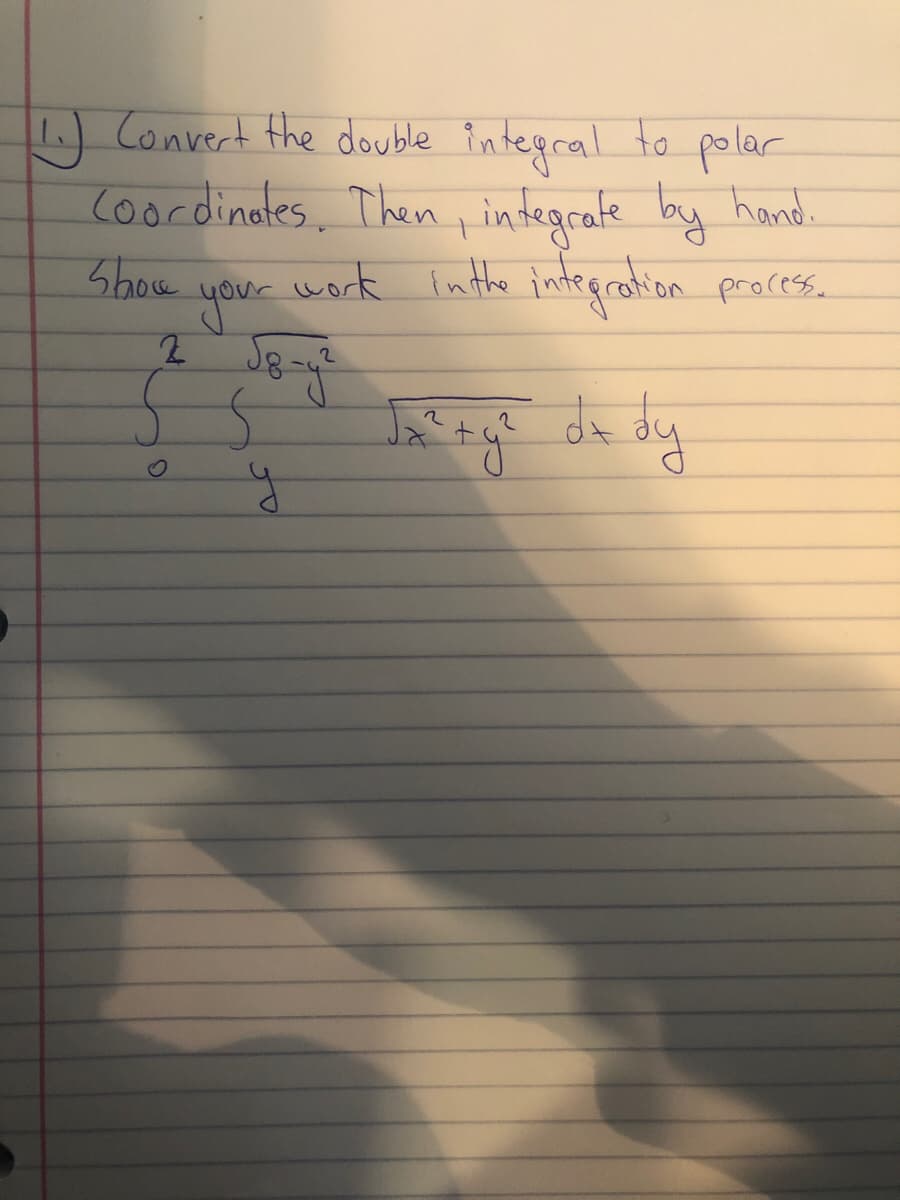 1.) Convert the double integral to polar
coordinates. Then, integrate by hand.
Show your work in the integration process.
∫₀² ∫_y^√(8-y²) √(x²+y²) dx dy